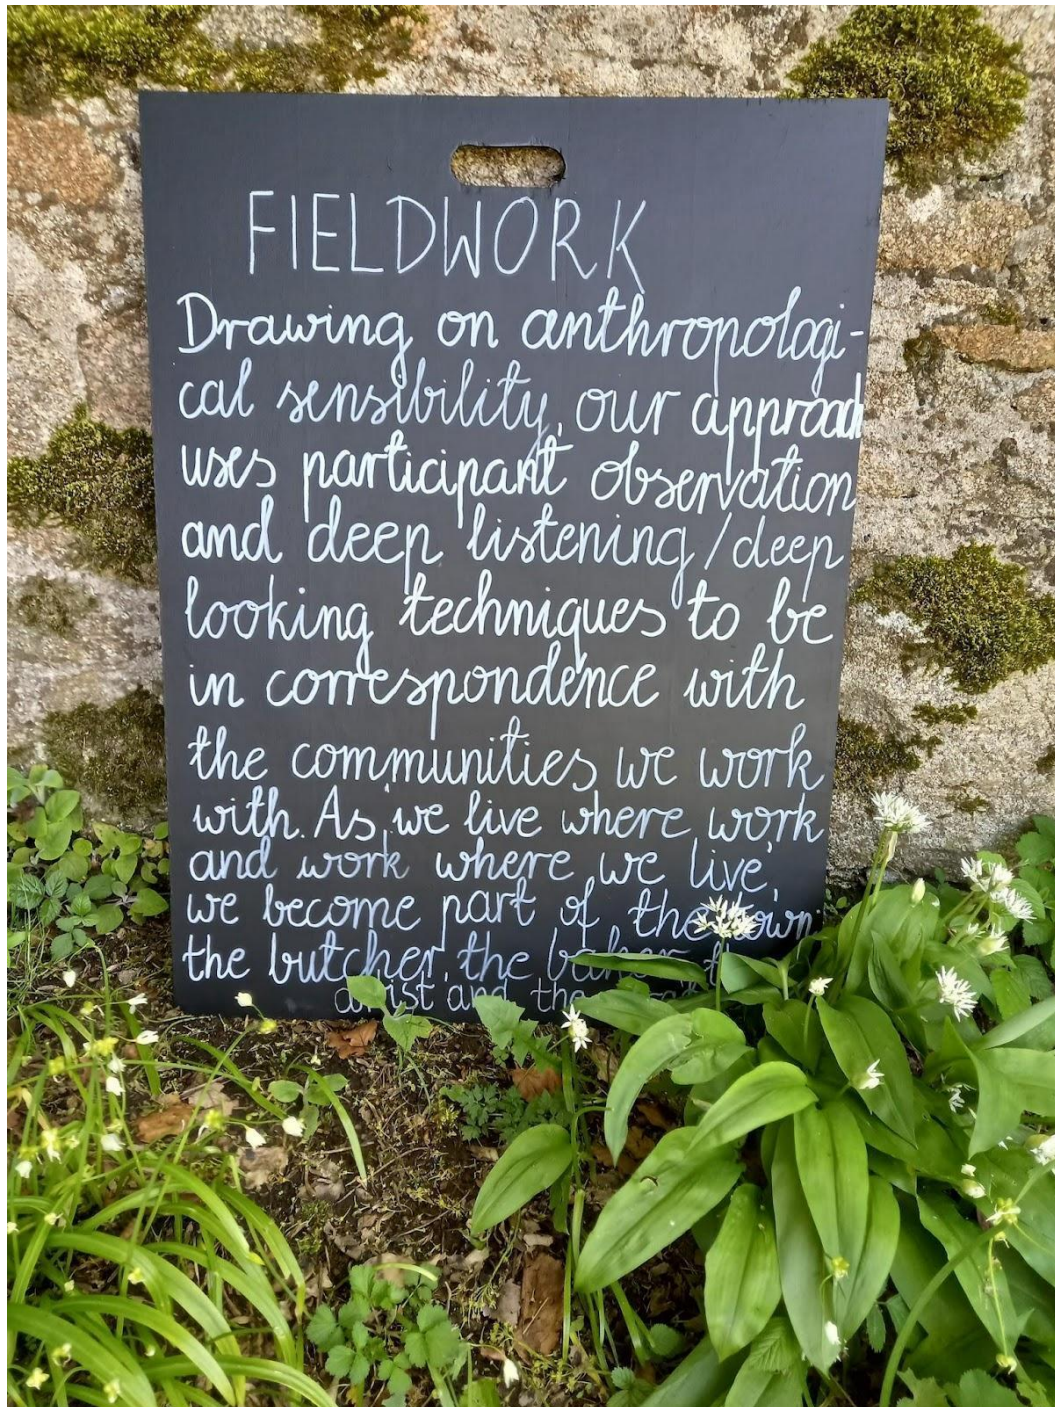 FIELDWORK
Drawing on anthropologi-
cal sensibility, our approach
uses participant observation
and deep listening/deep
looking techniques to be
in correspondence with
the communities we work
with. As, we live where work
and work where we live,
we become part of the town:
the butcher, the baker
artist and the